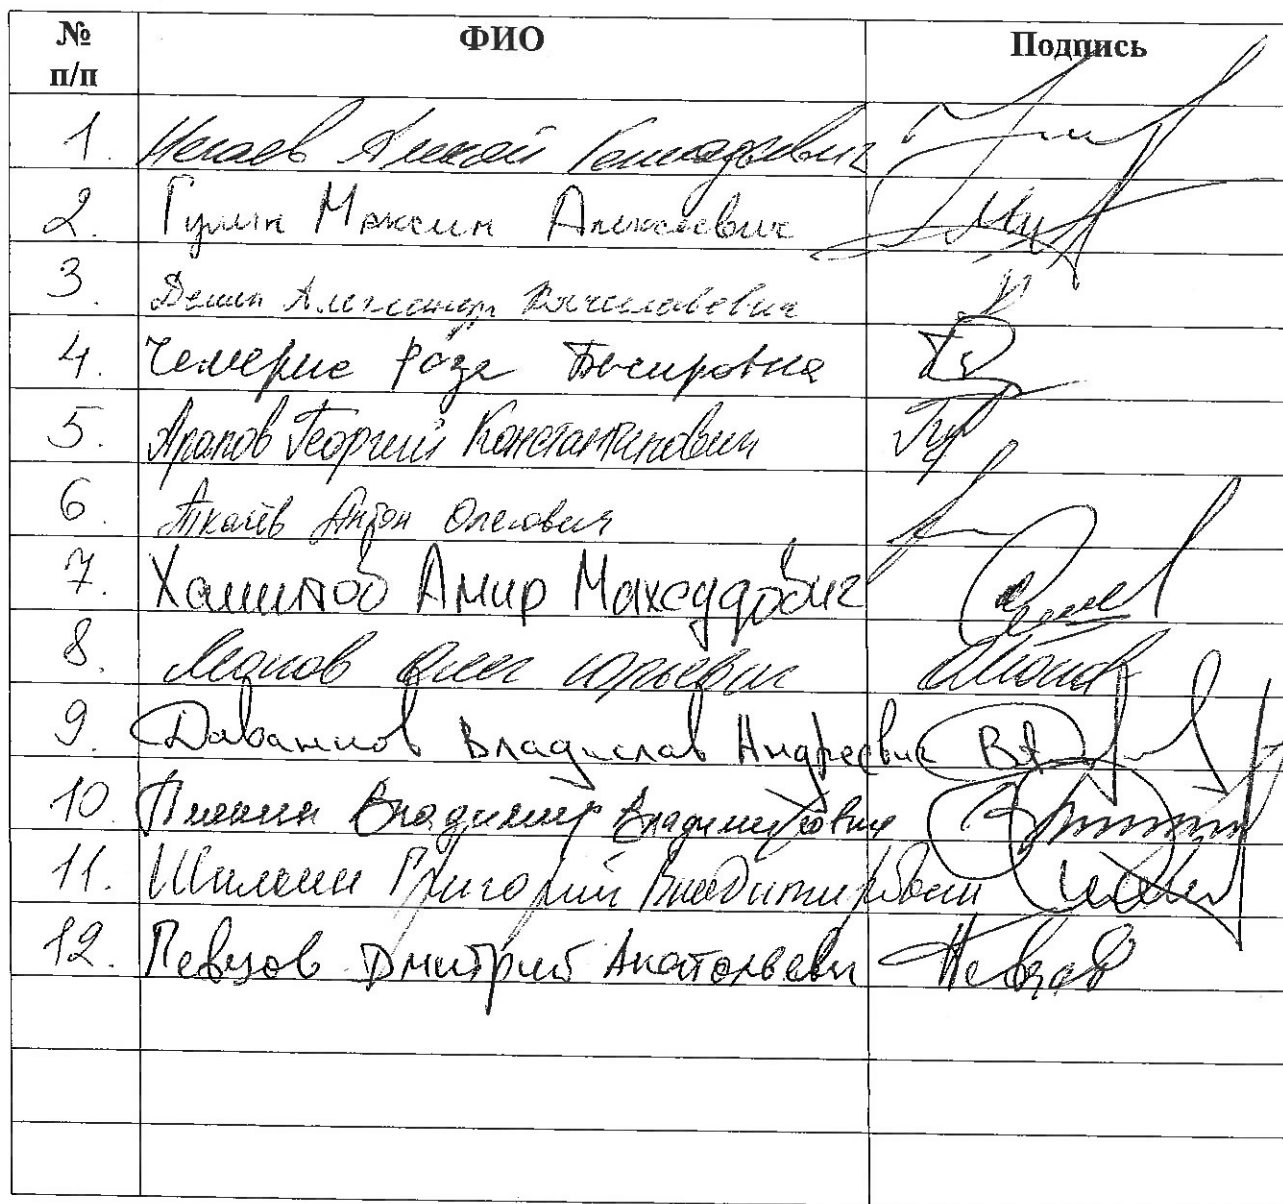 № п/п ФИО Подпись
1. Нечаев Алексей Геннадьевич
2. Гулин Максим Алексеевич
3. Демин Александр Вячеславович
4. Чемерис Роза Басировна
5. Арапов Георгий Константинович
6. Ткачёв Антон Олегович
7. Хамитов Амир Махсудович
8. Леонов Олег Юрьевич
9. Даванков Владислав Андреевич
10. Плякин Владимир Владимирович
11. Шилкин Григорий Владимирович
12. Певцов Дмитрий Анатольевич